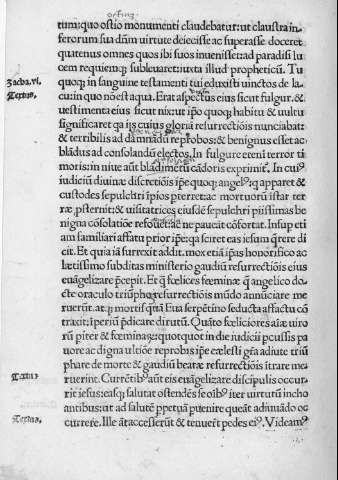 tum: quo ostio monumenti claudebatur: ut claustra in
ferorum sua dñm uirtute deiecisse ac superasse doceret
quatenus omnes quos ibi suos inuenisset: ad paradisi lu
cem requiemq; subleuaret: iuxta illud propheticũ. Tu
quoq; in sanguine testamenti tui eduxisti uinctos de la
Textus. cu: in quo nõ est aqua. Erat aspectus eius sicut fulgur. &
uestimenta eius sicut nix: ut ipõ quoq; habitu & uultu
significaret qa is cuius gloria resurrectiõis nunciabat:
& terribilis ad dãmnãdũ reprobos: & benignus esset ac
blãdus ad consolandũ electos. In fulgure etení terror ti
moris: in niue aũt blãdimẽtũ cãdoris exprimit. In cui9
iudiciũ diuinæ discretiõis ipe quoq; angel9: q apparet &
custodes sepulchri ipios pterret: ac mortuorũ istar ter
ræ psternit: & uisitatrices eiusdẽ sepulchri piissimas be
nigna cõsolatiõe refouet: ac ne paueãt cõfortat. Insup eti
am familiari affatu prior ipe: qa sciret eas iesum qrere di
cit. Et quia iã surrexit addit. mox etiã ipas honorifico ac
lætissimo subditas ministerio gaudiũ resurrectiõis eius
euãgelizare pcepit. Et q fœlices fœminæ q angelico do
ctæ oraculo triũphũ resurrectiõis mũdo annũciare me
ruerũt. at q; mortis qtã Eua serpẽtino seducta affactu cõ
traxit: iperiũ pdicare dirutũ. Quãto fœliciores aiæ uiro
rũ piter & fœminaꝝ: quotquot in die iudicii pcussis pa
uore ac digna ultiõe reprobis ipe cælesti gra adiute triũ
phare de morte & gaudiũ beatæ resurrectiõis itrare me
Textus ruerint. Currẽtib9 aũt eis euãgelizare discipulis occur
rit iesus: easq; salutat ostendẽs se oib9 iter uirtutũ incho
antibus: ut ad salutẽ ppetuã puenire queãt adiuuãdo oc
Textus currere. Ille aũt accesserũt & tenuerũt pedes ei9. Videam9